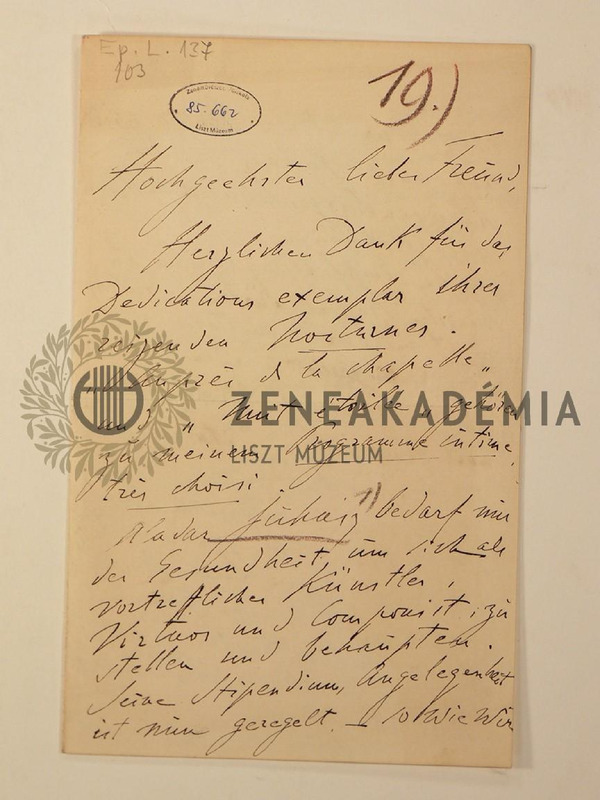 Ep. L. 137
103
Zeneművészeti Főiskola
85.662
Liszt Múzeum
19.)
Hochgeehrter lieber Freund,
Herzlichen Dank für das
Dedications exemplar ihrer
reizenden Nocturnes.
"Auprès de la chapelle"
und "Nuit étoilée" gehören
zu meinem Programme intime,
très choisi.
Aladar Juhász 1) bedarf nur
der Gesundheit um sich als
vortrefflicher Künstler,
Virtuos und Componist, zu
stellen und behaupten.
Seine Stipendium, Angelegenheit
ist nun geregelt – so wie wir
ZENEAKADÉMIA
LISZT MÚZEUM